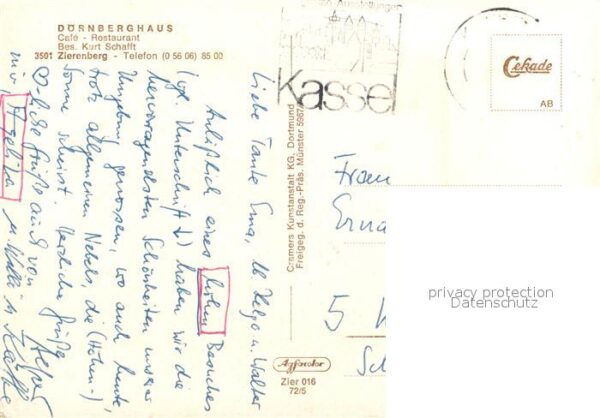 DÖRNBERGHAUS
Café - Restaurant
Bes. Kurt Schafft
3501 Zierenberg - Telefon (0 56 06) 85 00
Liebe Tante Erna, lb. Helga u. Walter
Anläßlich eines hohen Besuches
(vgl. Unterschrift!) haben wir die
hervorragendsten Schönheiten unserer
Umgebung genossen, wo auch heute,
trotz allgemeinen Nebels, die (Höhen-)
Sonne scheint. Herzliche Grüße
Liebe Grüße auch von
mir,
u. Willi u. Käthe
Kassel
Cramers Kunstanstalt KG, Dortmund
Freigeg. d. Reg.-Präs. Münster
Agfacolor
Zier 016
72/5
Cekade
AB
Frau
Erna
5
privacy protection
Datenschutz